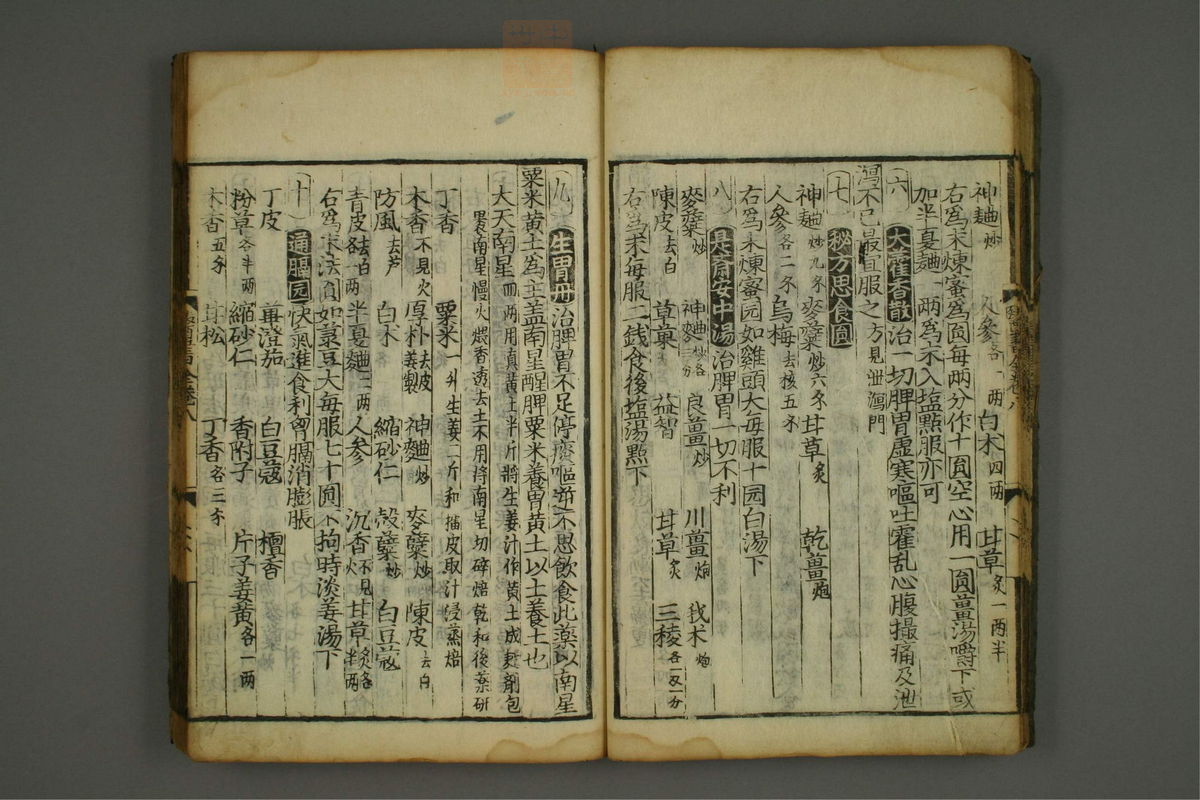 神麯炒 人參各一两 白术四两 甘草炙一两半
右爲末煉蜜爲圓每两分作十圓空心用一圓薑湯嚼下或
加半夏麯一两爲末入塩點服亦可
六 大霍香散 治一切脾胃虛寒嘔吐霍乱心腹撮痛及泄
瀉不已最宜服之 方見泄瀉門
七 秘方思食圓
神麯炒九朩 麥糵炒六朩 甘草炙 乾薑炮
人參各二朩 烏梅去核五朩
右爲末煉蜜园如雞頭大每服十园白湯下
八 是齋安中湯 治脾胃一切不利
麥糵炒 神麯炒各三分 良薑炒 川薑炮 莪术炮
陳皮去白 草菓 益智 甘草炙 三稜各一双一分
右爲末每服二錢食後塩湯點下
九 生胃丹 治脾胃不足停𢊁嘔逆不思飲食此藥以南星
粟米黄土爲主盖南星醒脾粟米養胃黄土以土養土也
大天南星四两用真黄土半斤將生姜汁作黄土成麪劑包
裹南星慢火煨香透去土不用將南星切碎焙乾和後藥研
丁香 粟米一升生姜二斤和搗皮取汁浸蒸焙
木香不見火 厚朴去皮姜製 神麯炒 麥糵炒 陳皮去白
防風去芦 白术 縮砂仁 穀糵炒 白豆蔻
青皮去白各一两 半夏麯二两 人參 沉香不見火 甘草炙各半两
右爲末法圓如菉豆大每服七十圓不拘時淡姜湯下
十 通膈园 快氣進食利胷膈消膨脹
丁皮 蓽澄茄 白豆蔻 檀香
粉草各半两 縮砂仁 香附子 片子姜黄各一两
木香五朩 甘松 丁香各三朩